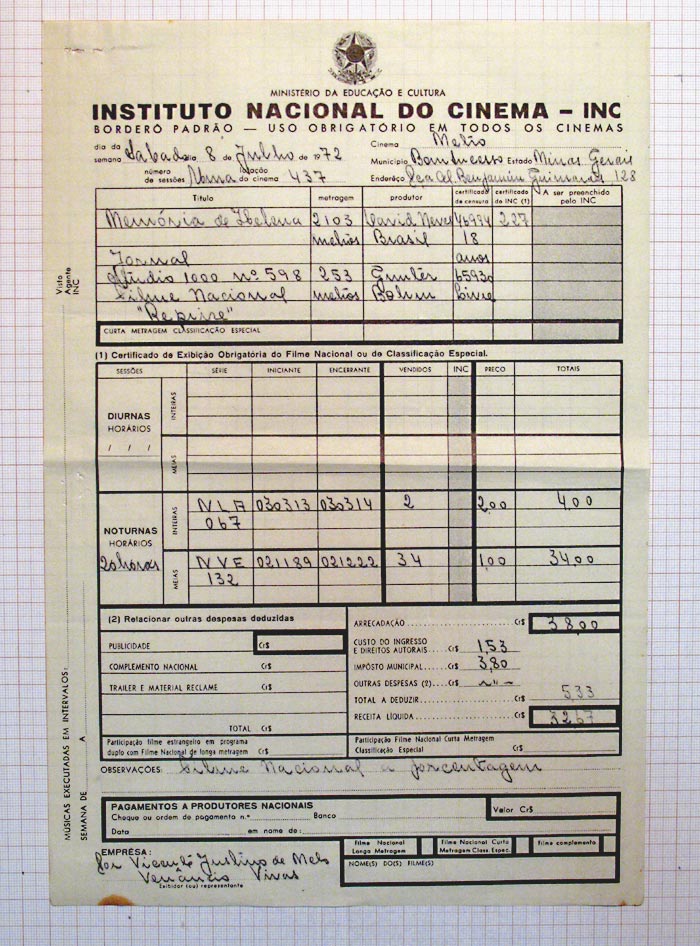 MINISTÉRIO DA EDUCAÇÃO E CULTURA
INSTITUTO NACIONAL DO CINEMA – INC
BORDERÔ PADRÃO — USO OBRIGATÓRIO EM TODOS OS CINEMAS
dia da semana Sabado 8 de Julho de 1972 Cinema
Município Bom Estado Minas Gerais
número de sessões Uma lotação do cinema 437 Endereço Benjamim Guimarães 128
Título metragem produtor certificado de censura certificado do INC (1) A ser preenchido pelo INC
Memória de Helena 2103 David Neves 46994 227
metros Brasil 18
Jornal anos
Studio 1000 nº 598 253 65930
Filme Nacional metros Livre
"Reprise"
CURTA METRAGEM CLASSIFICAÇÃO ESPECIAL
Visto Agente INC
(1) Certificado de Exibição Obrigatória do Filme Nacional ou de Classificação Especial.
SESSÕES SÉRIE INICIANTE ENCERRANTE VENDIDOS INC PREÇO TOTAIS
DIURNAS HORÁRIOS
/ / /
INTEIRAS
MEIAS
NOTURNAS HORÁRIOS
20 horas
INTEIRAS NLA 030313 030314 2 2,00 4,00
067
MEIAS NVE 021189 021222 34 1,00 34,00
132
(2) Relacionar outras despesas deduzidas
PUBLICIDADE Cr$
COMPLEMENTO NACIONAL Cr$
TRAILER E MATERIAL RECLAME Cr$
TOTAL Cr$
Participação filme estrangeiro em programa
duplo com Filme Nacional de longa metragem Cr$
ARRECADAÇÃO Cr$ 38,00
CUSTO DO INGRESSO
E DIREITOS AUTORAIS Cr$ 1,53
IMPÔSTO MUNICIPAL Cr$ 3,80
OUTRAS DESPESAS (2) Cr$
TOTAL A DEDUZIR 5,33
RECEITA LÍQUIDA Cr$ 32,67
Participação Filme Nacional Curta Metragem
Classificação Especial Cr$
OBSERVAÇÕES: Filme Nacional a porcentagem
MÚSICAS EXECUTADAS EM INTERVALOS:
SEMANA DE A
PAGAMENTOS A PRODUTORES NACIONAIS
Valor Cr$
Cheque ou ordem de pagamento n.º Banco
Data em nome de:
EMPRÊSA:
por Vicente Justino de Melo
Venâncio Vivas
Exibidor (ou) representante
Filme Nacional Longa Metragem
Filme Nacional Curta Metragem Class. Espec.
Filme complemento
NOME(S) DO(S) FILME(S)